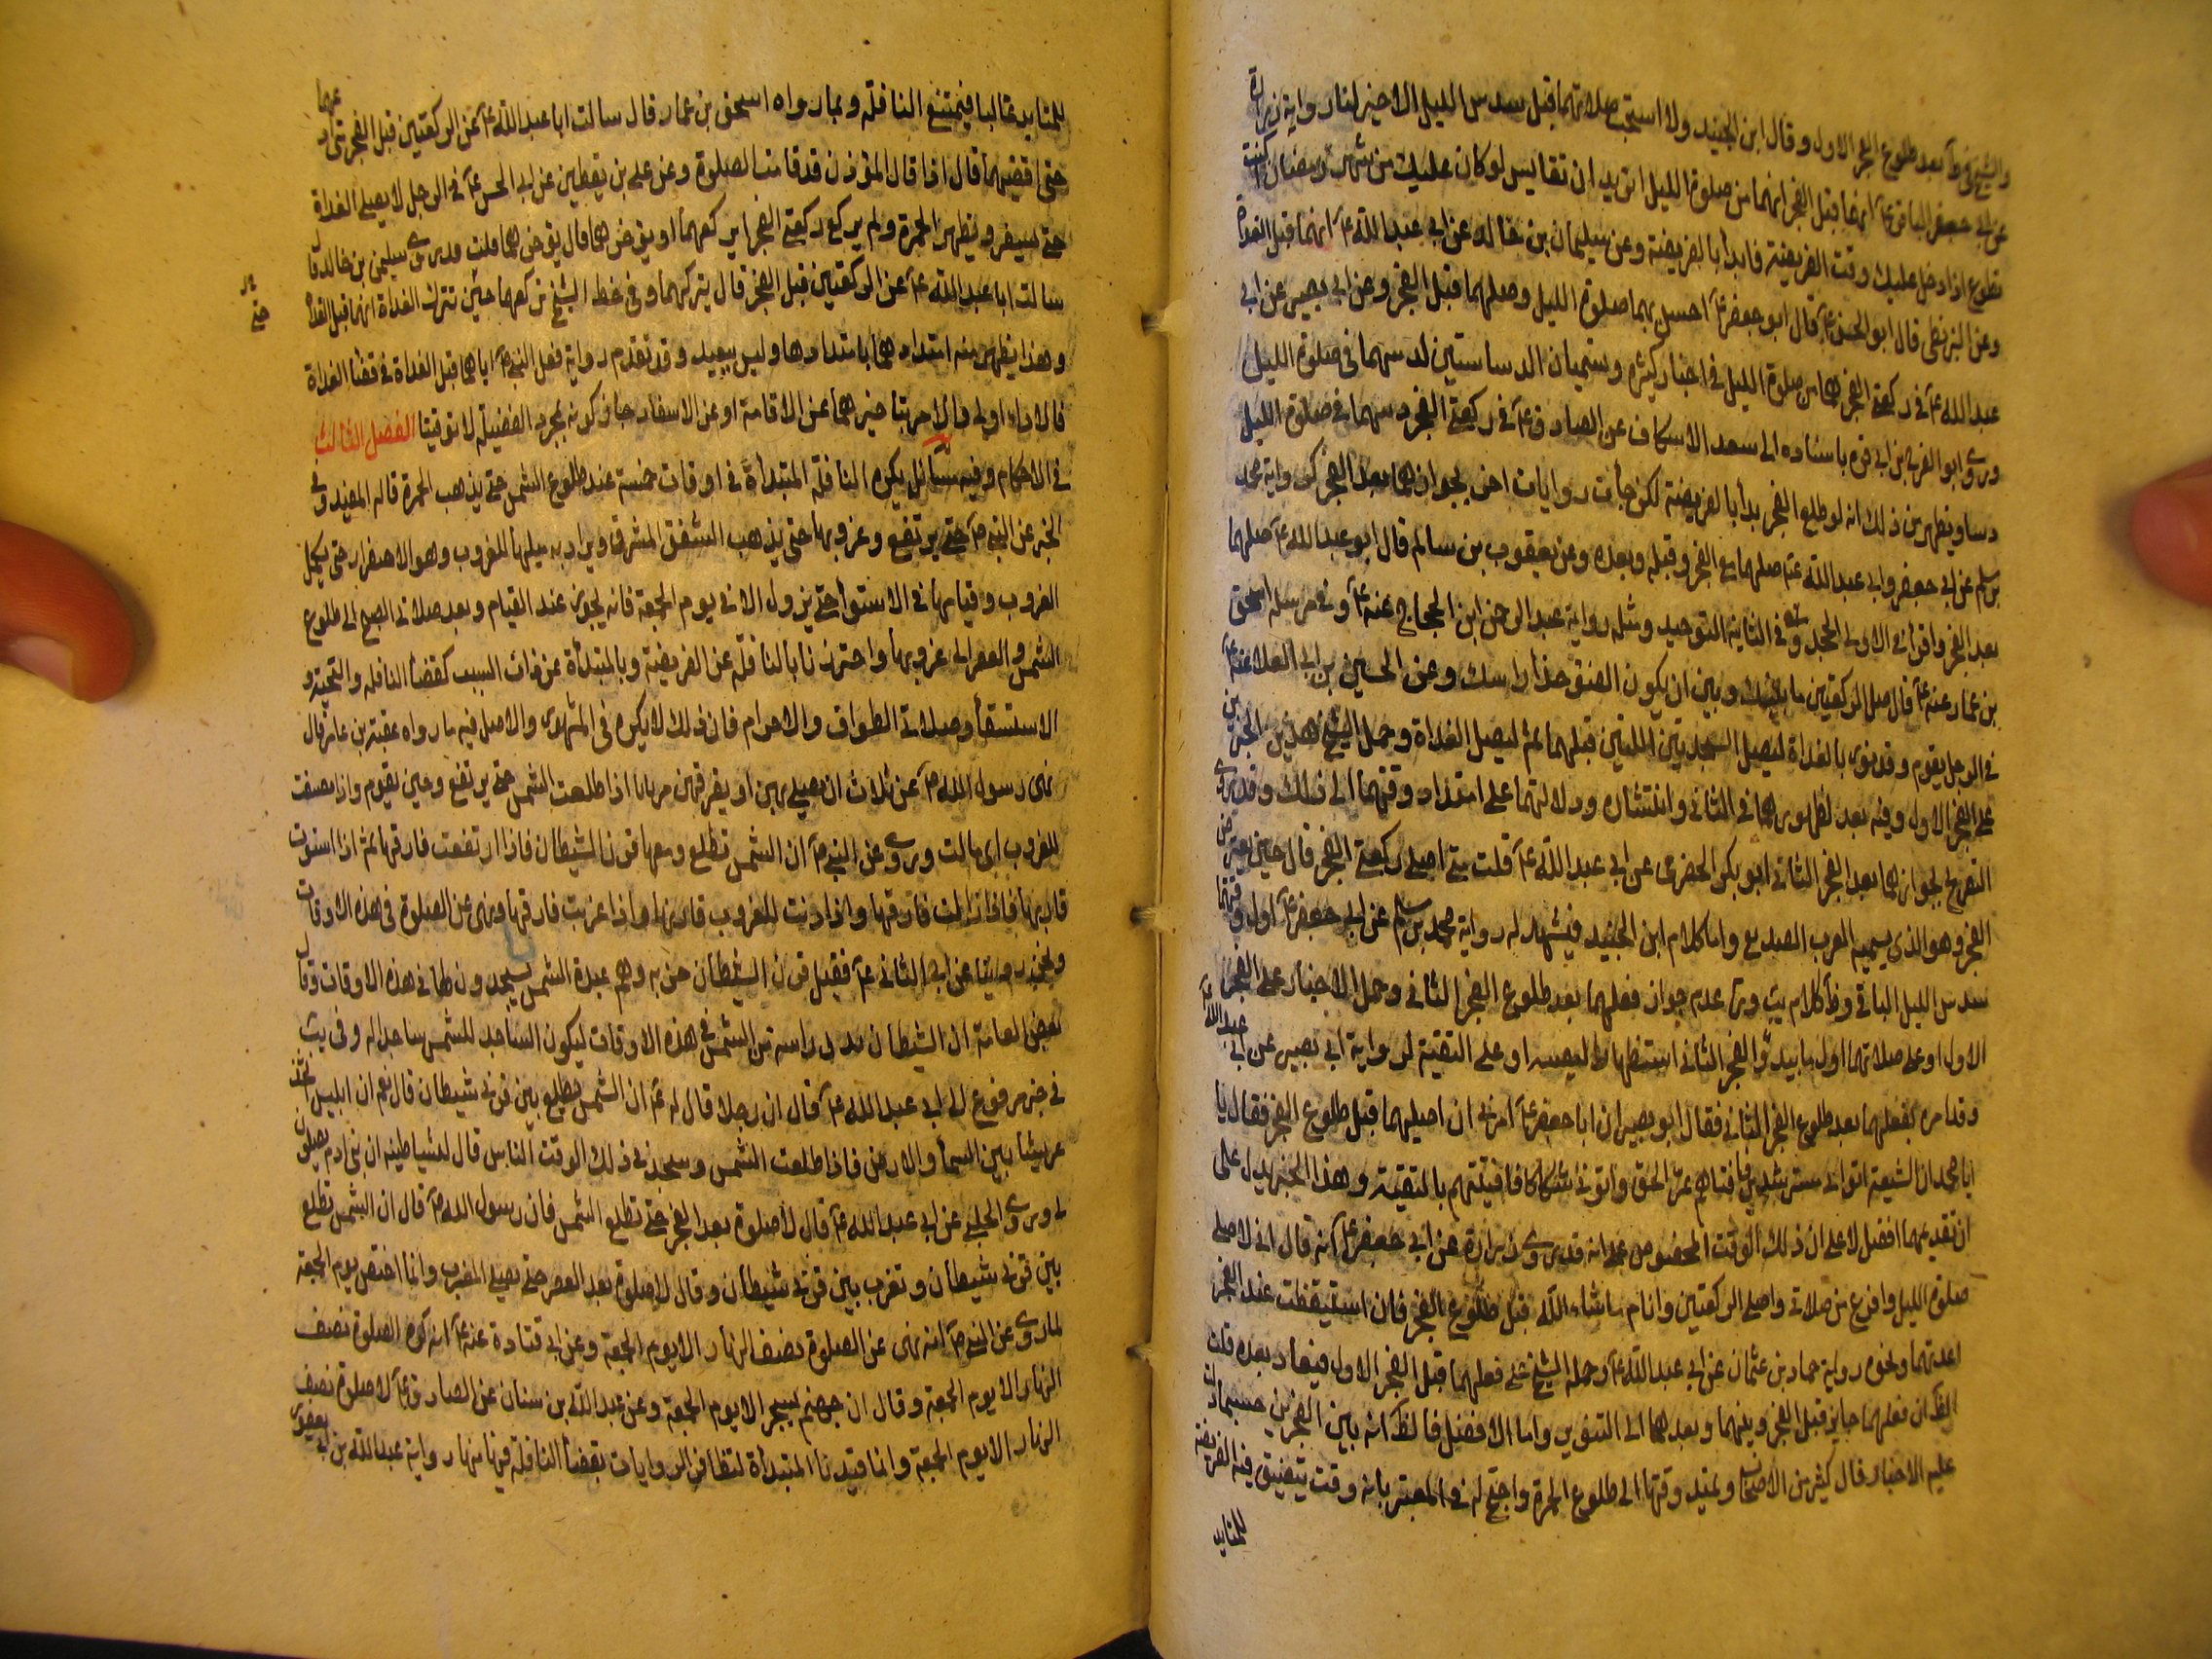 والشيخ في ط بعد طلوع الفجر الاول وقال ابن الجنيد ولا استحب صلاتهما قبل سدس الليل الاخير لنا رواية زرارة
عن ابي جعفر الباقر ع انهما قبل الفجر انهما من صلوة الليل اتريد ان تقايس لو كان عليك من شهر رمضان اكنت
تطوع اذا دخل عليك وقت الفريضة فابدأ بالفريضة وعن سليمان بن خالد عن ابي عبد الله ع انهما قبل الغداة
وعن البزنطي قال ابو الحسن ع قال ابو جعفر ع احش بهما صلوة الليل وصلهما قبل الفجر وعن ابي بصير عن ابي
عبد الله ع في ركعتي الفجر هما من صلوة الليل في اخبار كثيرة وتسميان الدساستين لدسهما في صلوة الليل
وروى ابو الفرج بن ابي قرة باسناده الى سعد الاسكاف عن الصادق ع في ركعتي الفجر دسهما في صلوة الليل
دسا ويظهر من ذلك انه لو طلع الفجر بدأ بالفريضة لكن جاءت روايات اخر بجوازهما بعد الفجر كرواية محمد
بن مسلم عن ابي جعفر وابي عبد الله ع صلهما مع الفجر وقبله وبعده وعن يعقوب بن سالم قال ابو عبد الله ع صلهما
بعد الفجر واقرأ في الاولى الجحد وفي الثانية التوحيد ومثله رواية عبد الرحمن ابن الحجاج عنه ع وفي مرسلة اسحق
بن عمار عنه ع قال صل الركعتين ما بينك وبين ان يكون الضوء حذاء راسك وعن الحسين بن ابي العلا عنه ع
في الرجل يقوم وقد نور بالغداة ليصل السجدتين اللتين قبلهما ثم ليصل الغداة وحمل الشيخ هذين الخبرين
على الفجر الاول وفيه بعد لظهورهما في الثاني وانتشاره ودلالتهما على امتداد وقتهما الى ذلك وقد روى
التصريح بجوازهما بعد الفجر الثاني ابو بكر الحضرمي عن ابي عبد الله ع قلت متى اصلي ركعتي الفجر قال حين يعترض
الفجر وهو الذي يسميه العرب الصديع واما كلام ابن الجنيد فيشهد له رواية محمد بن مسلم عن ابي جعفر ع اول وقتهما
سدس الليل الباقي وظ كلام يب ور عدم جواز فعلهما بعد طلوع الفجر الثاني وحمل الاخبار على الفجر
الاول او على صلاتهما اول ما يبدو الفجر الثاني استظهارا لتبينه او على التقية لرواية ابي بصير عن ابي عبد الله ع
وقد امره بفعلهما بعد طلوع الفجر الثاني فقال ابو بصير ان ابا جعفر ع امرني ان اصليهما قبل طلوع الفجر فقال يا
ابا محمد ان الشيعة اتوا ابي مسترشدين فافتاهم بمر الحق واتوني شكاكا فافتيتهم بالتقية وهذا الخبر يدل على
ان تقديمهما افضل لا على ان ذلك الوقت المخصوص على انه قد روى زرارة عن ابي جعفر ع انه قال اني لاصلي
صلوة الليل وافرغ من صلاتي واصلي الركعتين وانام ما شاء الله قبل طلوع الفجر فان استيقظت عند الفجر
اعدتهما ونحوه رواية حماد بن عثمان عن ابي عبد الله ع وحمله الشيخ على فعلهما قبل الفجر الاول فيعاد بعده قلت
الظ ان فعلهما جايز قبل الفجر وبينهما وبعدهما الى التنوير واما الافضل فالظ انه بين الفجرين حسبما دلت
عليه الاخبار قال كثير من الاصحاب ويمتد وقتها الى طلوع الحمرة واحتج له في المعتبر بانه وقت يتضيق فيه الفريضة
للمتايد
للمتايد غالبا فيمتنع النافلة وبما رواه اسحق بن عمار قال سالت ابا عبد الله ع عن الركعتين قبل الفجر متى ادعهما
حتى اقضيهما قال اذا قال المؤذن قد قامت الصلوة وعن علي بن يقطين عن ابي الحسن ع في الرجل لا يصلي الغداة
حتى يسفر وتظهر الحمرة ولم يركع ركعتي الفجر ايركعهما او يؤخرهما قال يؤخرهما قلت وقد روى سليمن بن خالد قال
سالت ابا عبد الله ع عن الركعتين قبل الفجر قال يتركهما وفي خط الشيخ تركعهما حين تترك الغداة انهما قبل الغداة
وهذا يظهر منه امتدادهما بامتدادها وليس ببعيد وقد تقدم رواية فعل النبي ص اياهما قبل الغداة في قضاء الغداة
فالاداء اولى والامر بتاخيرهما عن الاقامة او عن الاسفار جاز كونه لمجرد الفضيلة لا توقيتا الفصل الثالث
في الاحكام وفيه مسائل يكره النافلة المبتدأة في اوقات خمسة عند طلوع الشمس حتى يذهب الحمرة قاله المفيد وفي
الخبر عن النبي ص حتى يرتفع وغروبها حتى يذهب الشفق المشرقي ويراد به ميلها للغروب وهو الاصفرار حتى يكمل
الغروب وقيامها في الاستواء حتى يزول الا في يوم الجمعة فانه يجوز عند القيام وبعد صلاتي الصبح الى طلوع
الشمس والعصر الى غروبها واحترزنا بالنافلة عن الفريضة وبالمبتدأة عن ذات السبب كقضاء النافلة والتحية و
الاستسقاء وصلاة الطواف والاحرام فان ذلك لا يكره في المشهور والاصل فيه ما رواه عقبة بن عامر قال
نهى رسول الله ص عن ثلاث ان نصلي بهن او يقبر فيهن موتانا اذا طلعت الشمس حتى يرتفع وحين يقوم واذا تضيفت
للغروب اي مالت وروى عن النبي ص ان الشمس تطلع ومعها قرن الشيطان فاذا ارتفعت فارقها ثم اذا استوت
قارنها فاذا زالت فارقها واذا دنت للغروب قارنها واذا غربت فارقها ونهى عن الصلوة في هذه الاوقات
ونحوه روينا عن ابي الثاني ع فقيل قرن الشيطان حزبه وهم عبدة الشمس يسجدون لها في هذه الاوقات وقال
بعض العامة ان الشيطان يدني راسه من الشمس في هذه الاوقات ليكون الساجد للشمس ساجدا له وفي يب
في خبر مرفوع الى ابي عبد الله ع قال ان رجلا قال له ع ان الشمس تطلع بين قرني شيطان قال نعم ان ابليس اتخذ
عريشا بين السماء والارض فاذا طلعت الشمس وسجد في ذلك الوقت الناس قال لشياطينه ان بني ادم يصلون
لي وروى الحلبي عن ابي عبد الله ع قال لا صلوة بعد الفجر حتى تطلع الشمس فان رسول الله ص قال ان الشمس تطلع
بين قرني شيطان وتغرب بين قرني شيطان وقال لا صلوة بعد العصر حتى يصلي المغرب وانما اختص يوم الجمعة
لما روى عن النبي ص انه نهى عن الصلوة نصف النهار الا يوم الجمعة وعن ابي قتادة عنه ع انه كره الصلوة نصف
النهار الا يوم الجمعة وقال ان جهنم تسجر الا يوم الجمعة وعن عبد الله بن سنان عن الصادق ع لا صلوة نصف
النهار الا يوم الجمعة وانما قيدنا المبتدأة لتظافر الروايات بقضاء النافلة فيها منها رواية عبد الله بن ابي يعفور